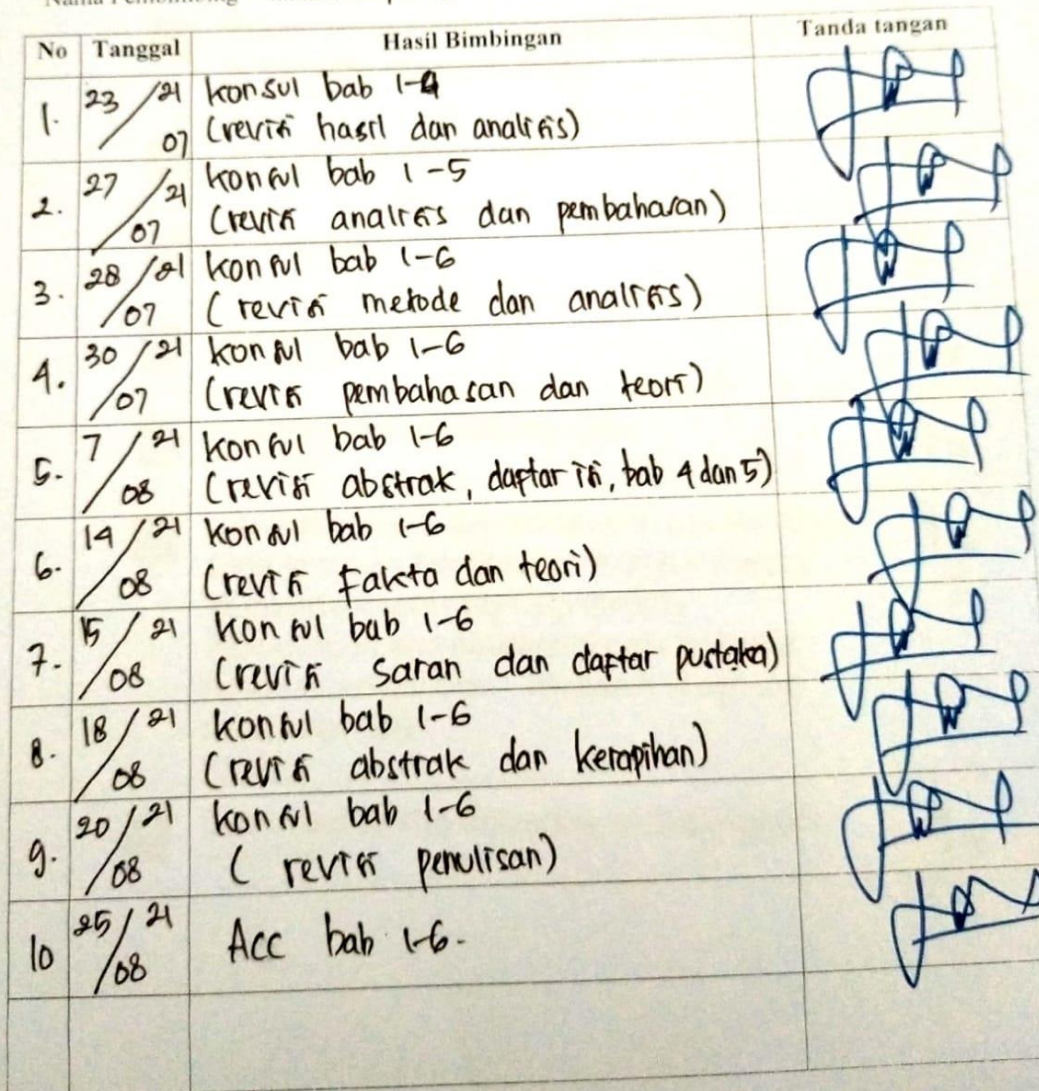 No Tanggal Hasil Bimbingan Tanda tangan
1. 23/07 21 konsul bab 1-4
(revisi hasil dan analisis)
2. 27/07 21 konsul bab 1-5
(revisi analisis dan pembahasan)
3. 28/07 21 konsul bab 1-6
(revisi metode dan analisis)
4. 30/07 21 konsul bab 1-6
(revisi pembahasan dan teori)
5. 7/08 21 konsul bab 1-6
(revisi abstrak, daftar isi, bab 4 dan 5)
6. 14/08 21 konsul bab 1-6
(revisi fakta dan teori)
7. 15/08 21 konsul bab 1-6
(revisi saran dan daftar pustaka)
8. 18/08 21 konsul bab 1-6
(revisi abstrak dan kerapihan)
9. 20/08 21 konsul bab 1-6
(revisi penulisan)
10 25/08 21 Acc bab 1-6.